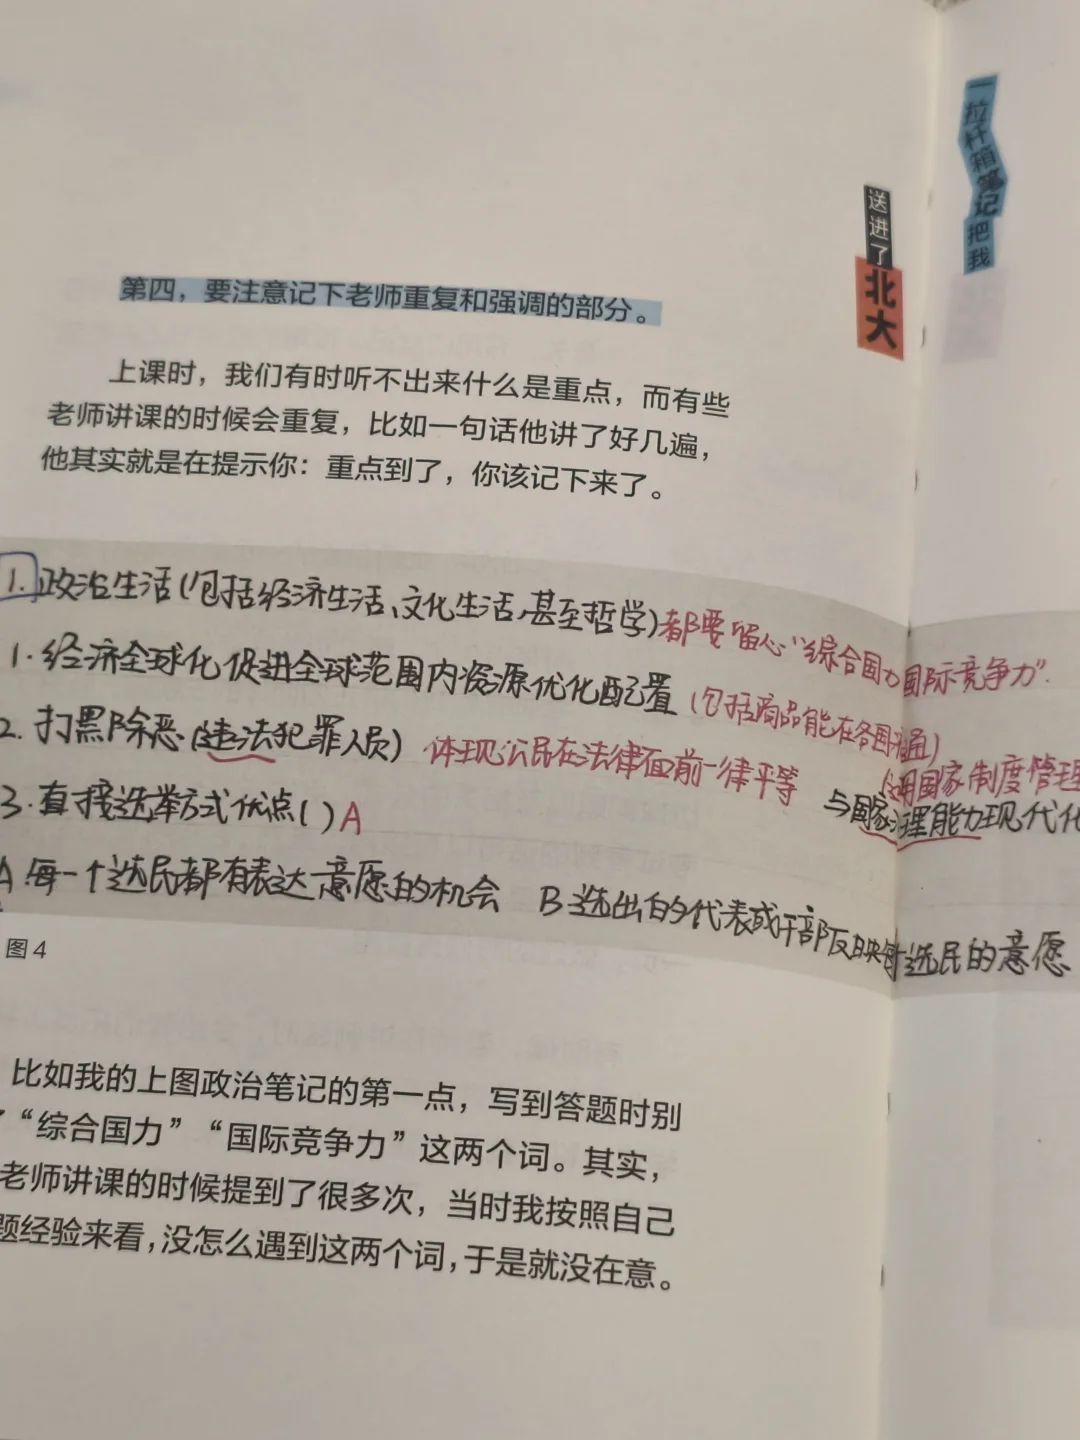 一拉杆箱笔记把我
送进了
北大
第四，要注意记下老师重复和强调的部分。
上课时，我们有时听不出来什么是重点，而有些
老师讲课的时候会重复，比如一句话他讲了好几遍，
他其实就是在提示你：重点到了，你该记下来了。
1.政治生活(包括经济生活、文化生活,甚至哲学)都要留心"综合国力 国际竞争力".
1.经济全球化促进全球范围内资源优化配置(包括商品能在各国流通)
2.打黑除恶(违法犯罪人员) 体现公民在法律面前一律平等
国家制度管理
与国家治理能力现代化
3.直接选举方式优点( )A
A 每一个选民都有表达意愿的机会 B选出的代表或干部反映 选民的意愿
图4
比如我的上图政治笔记的第一点，写到答题时别
“综合国力”“国际竞争力”这两个词。其实，
老师讲课的时候提到了很多次，当时我按照自己
题经验来看，没怎么遇到这两个词，于是就没在意。